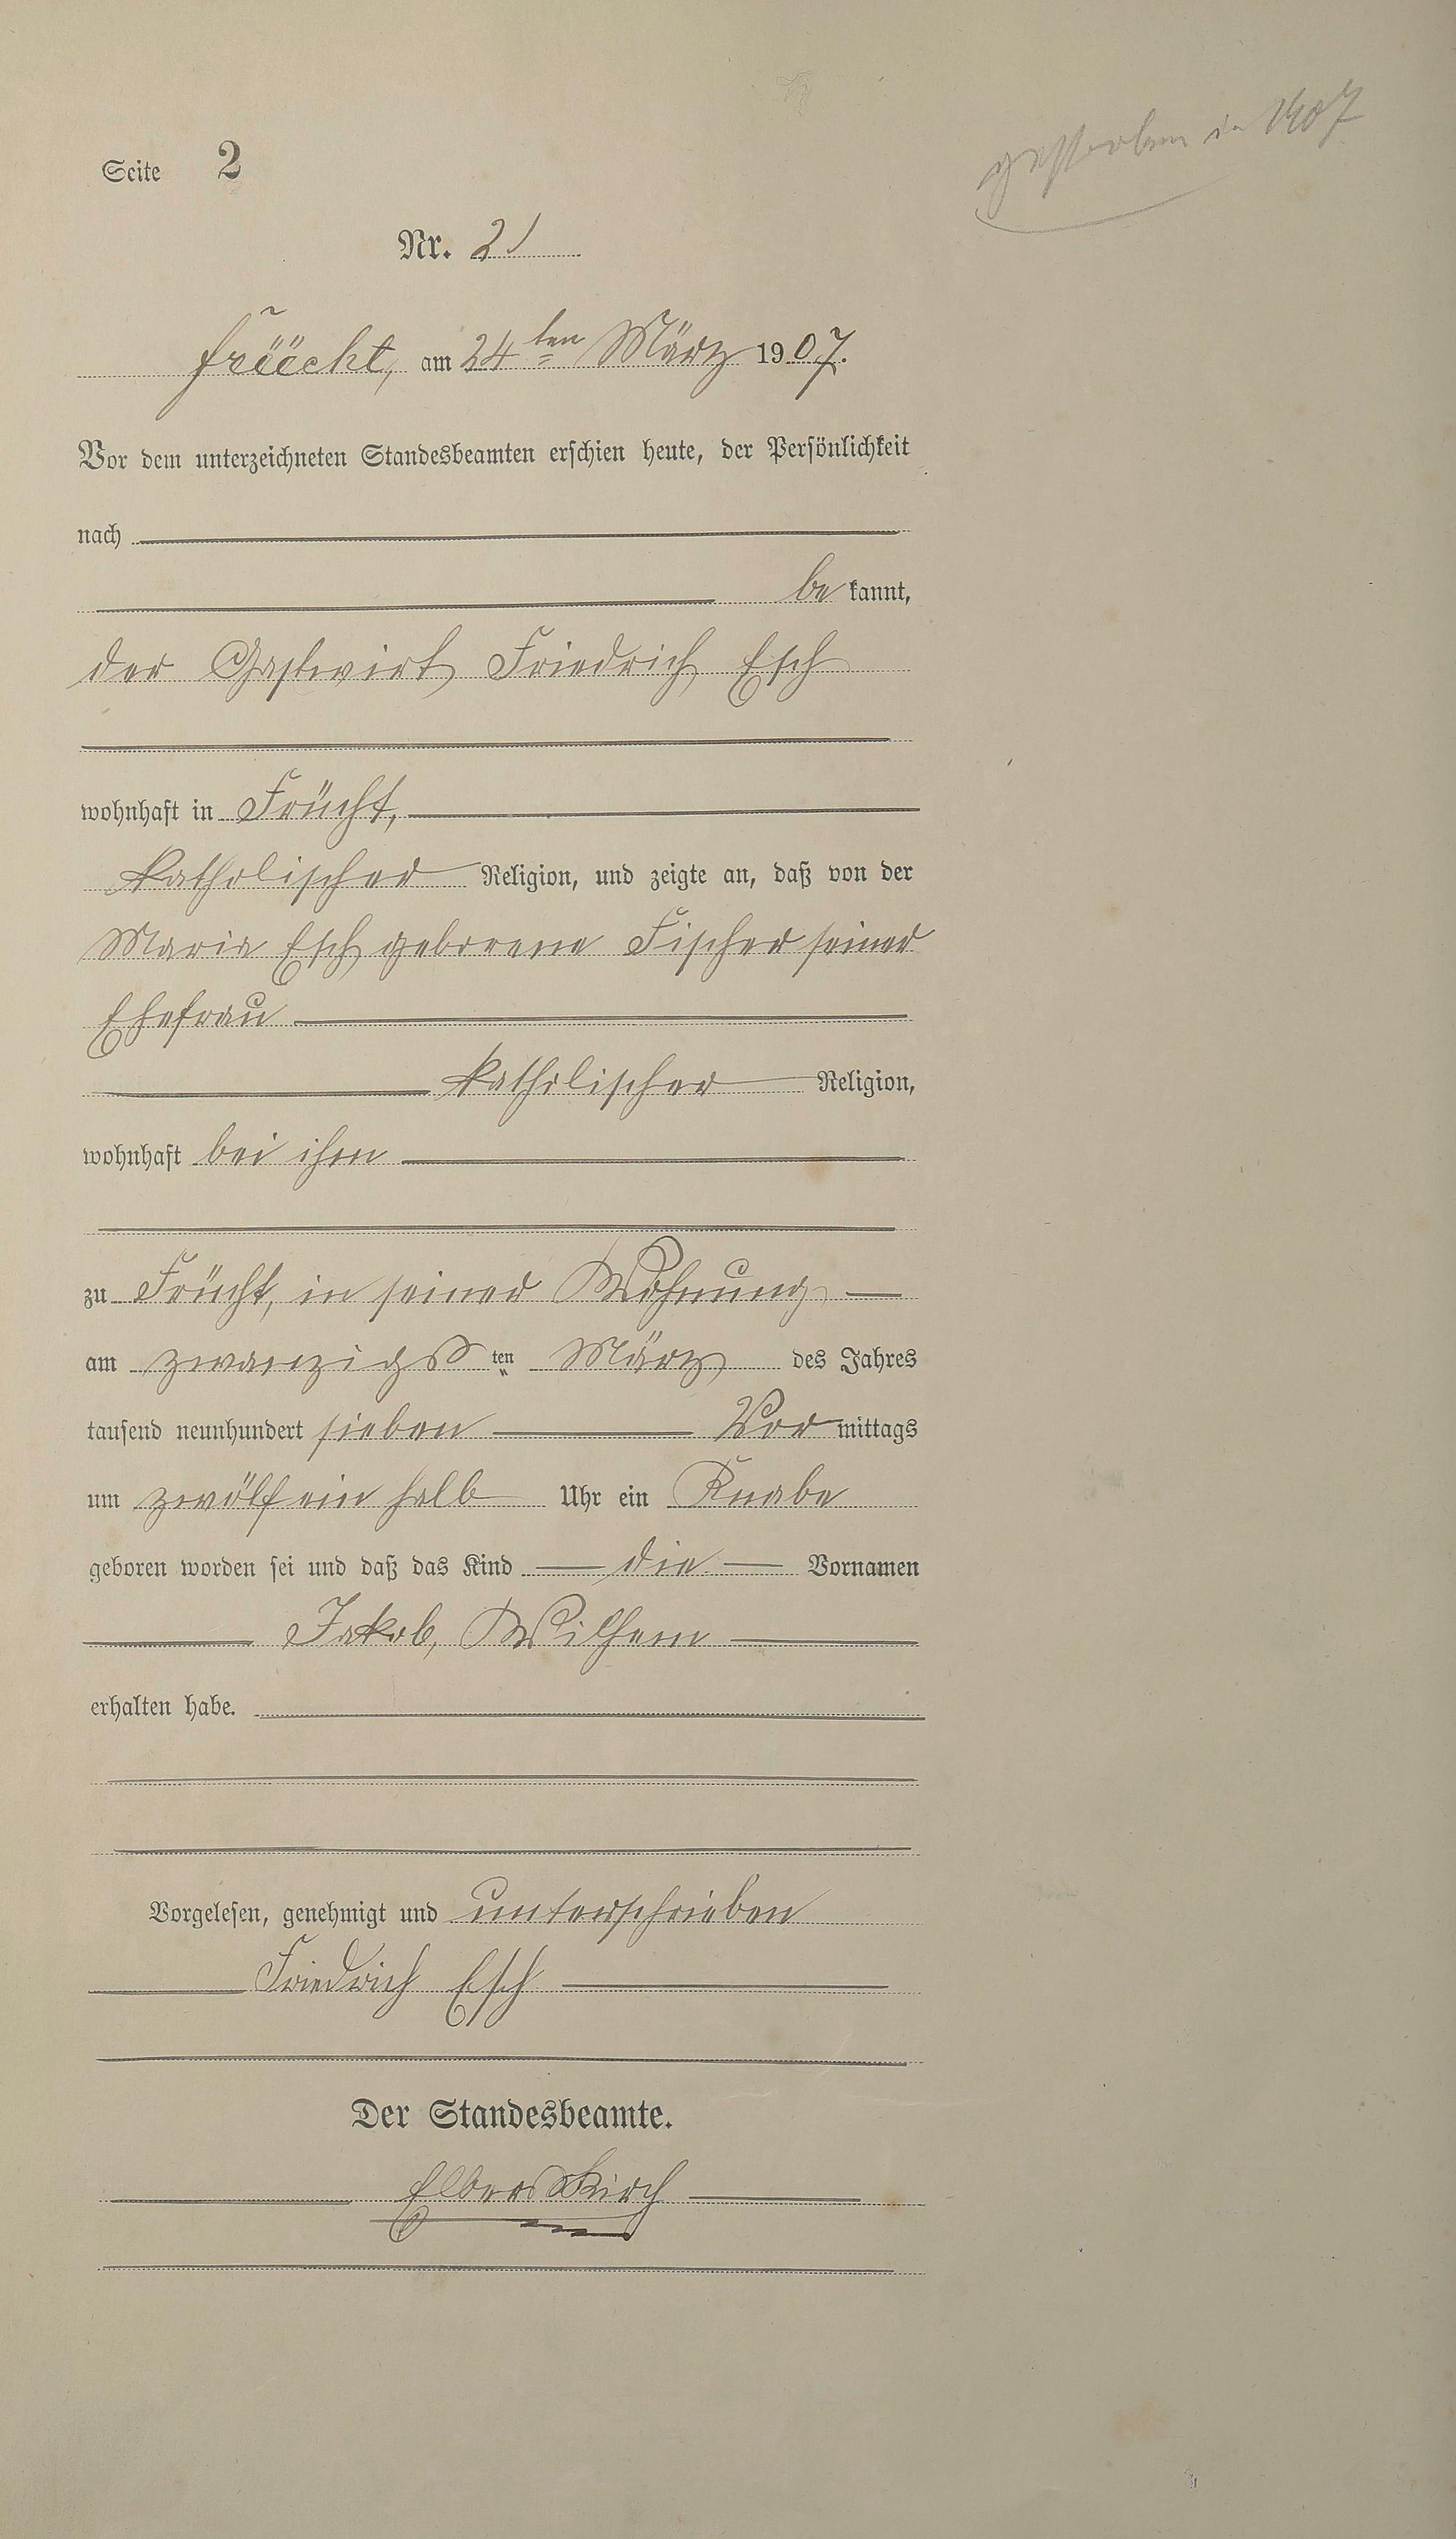 gestorben in 1907
Seite 2
Nr. 2
Früücht, am 24ten März 1907.
Vor dem unterzeichneten Standesbeamten erschien heute, der Persönlichkeit
nach
be kannt,
der Gastwirt Friedrich Esch
wohnhaft in Frücht,
katholischer Religion, und zeigte an, daß von der
Maria Esch geborene Fischer seiner
Ehefrau
katholischer Religion,
wohnhaft bei ihm
zu Frücht, in seiner Wohnung
am zwanzigsten März des Jahres
tausend neunhundert sieben Vormittags
um zwölf ein halb Uhr ein Knabe
geboren worden sei und daß das Kind die Vornamen
Jakob, Wilhem
erhalten habe.
Vorgelesen, genehmigt und unterschrieben
Friedrich Esch
Der Standesbeamte.
Elberskirch